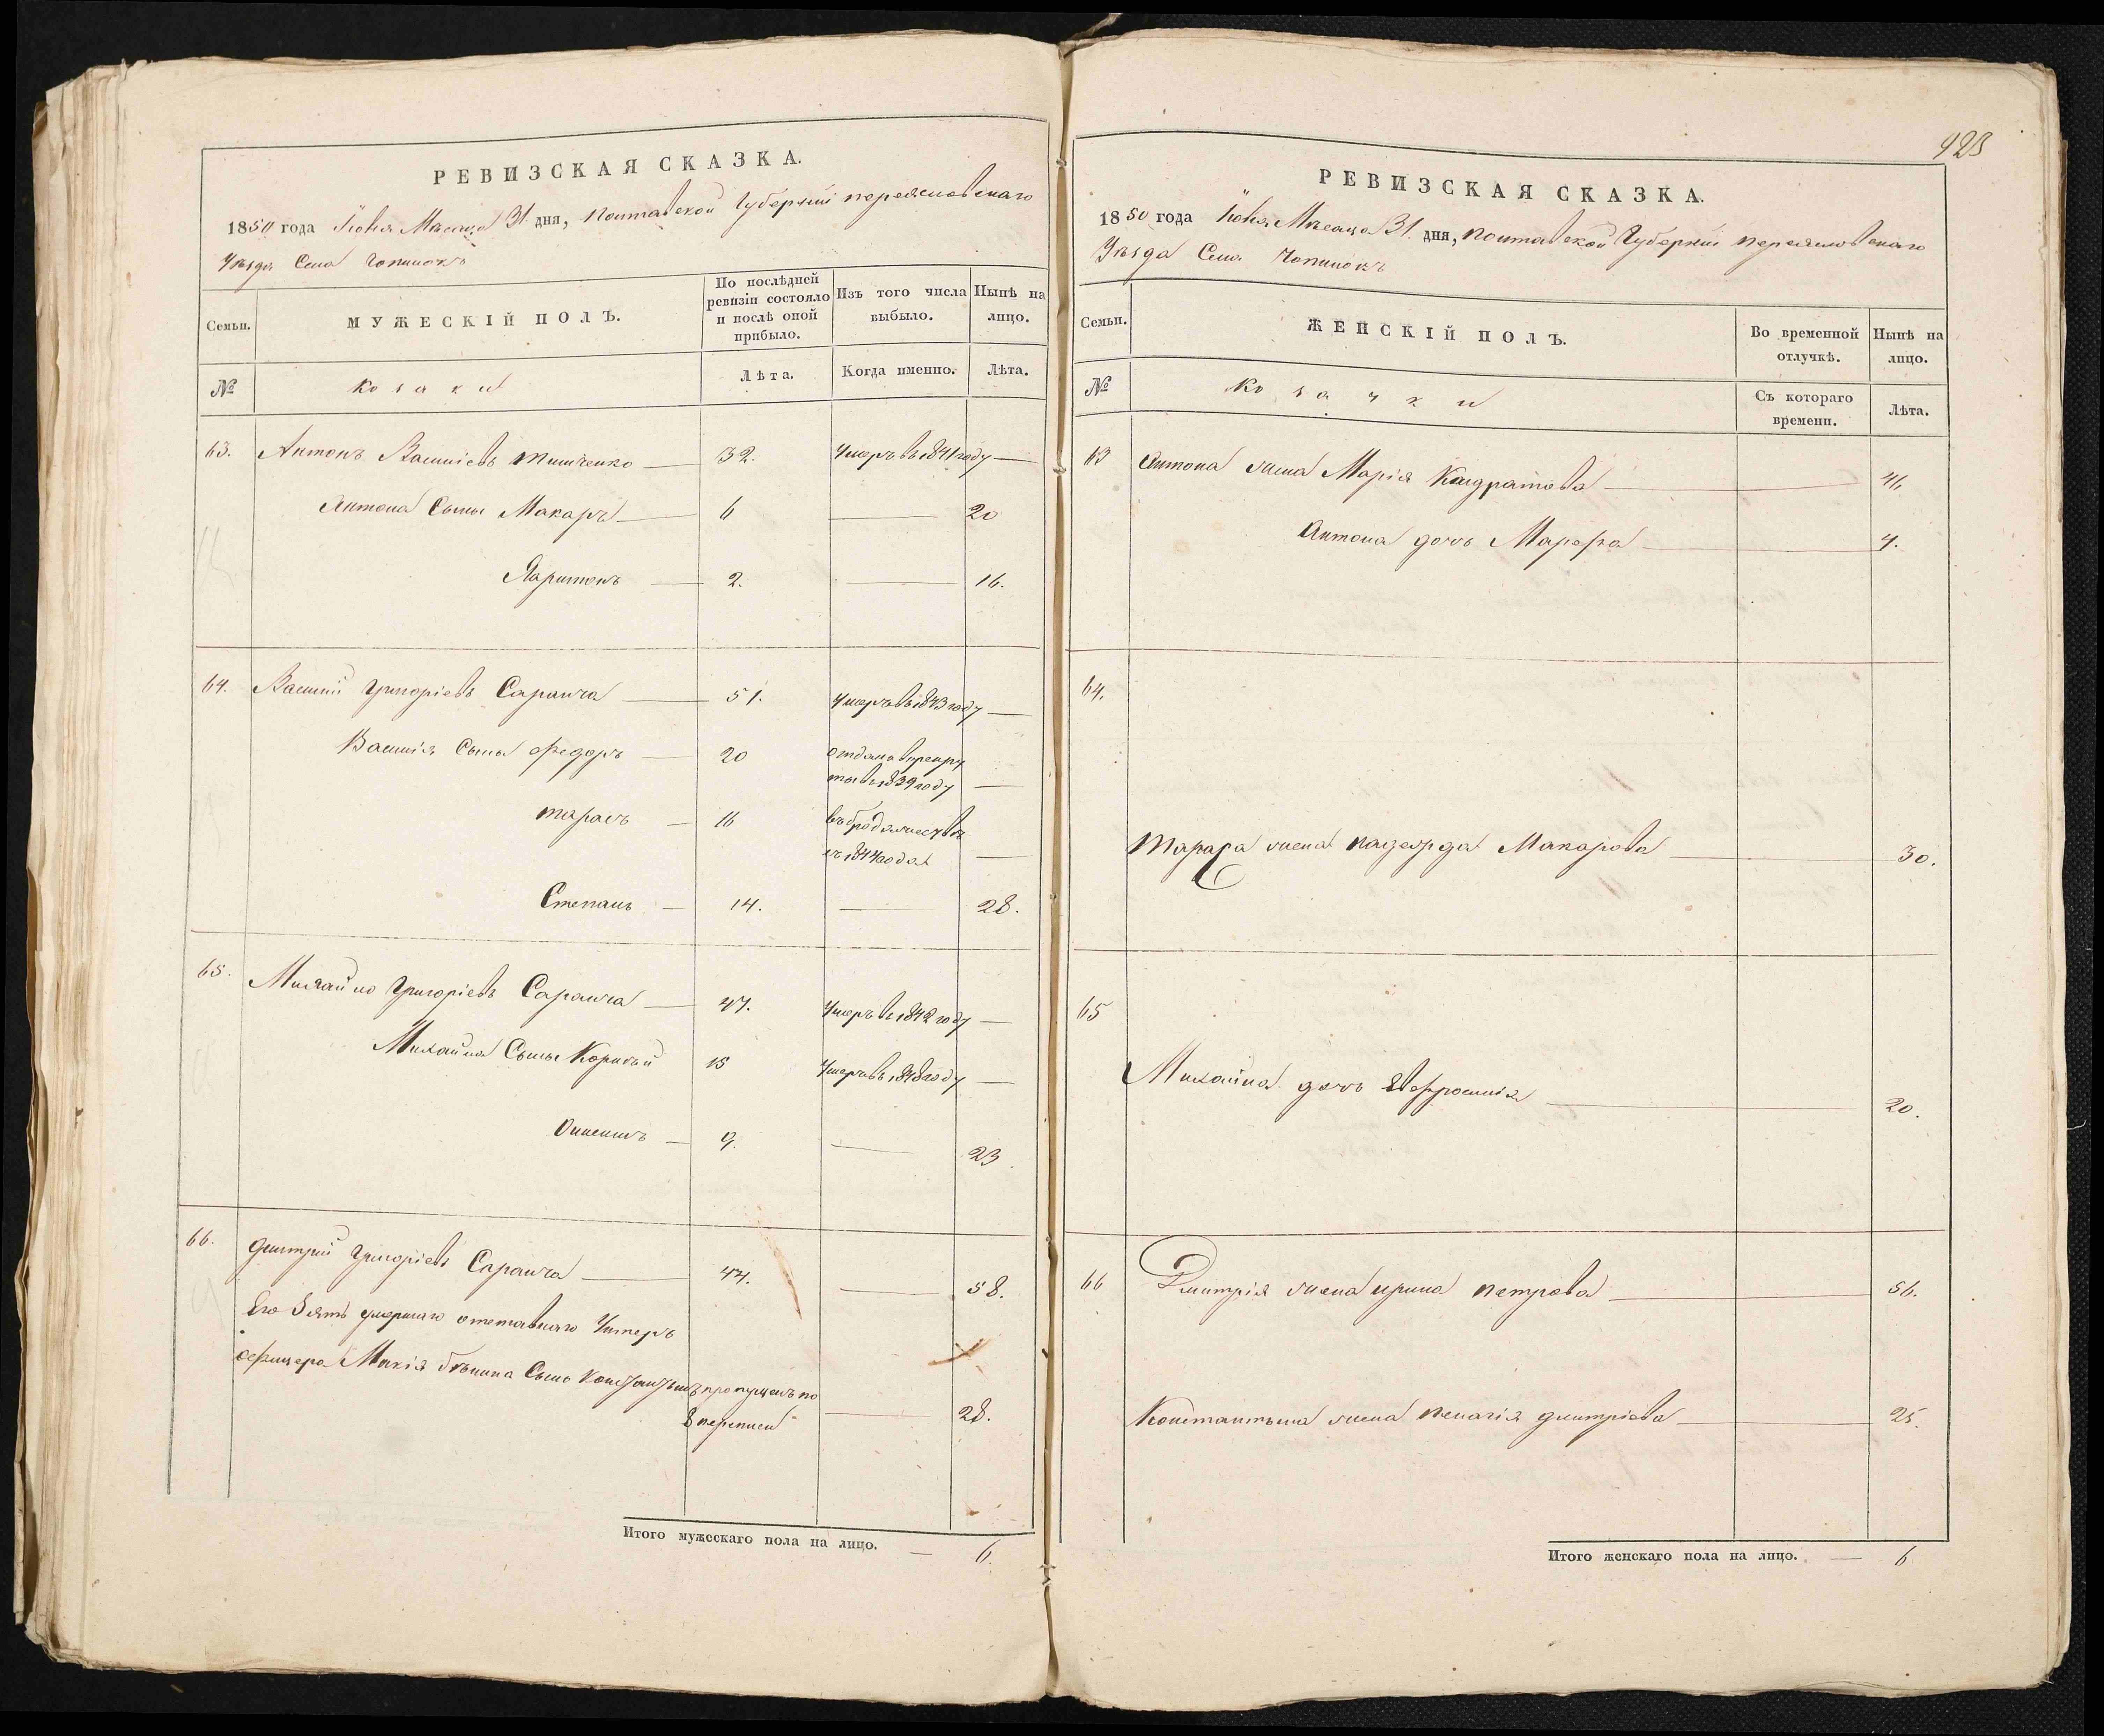 РЕВИЗСКАЯ СКАЗКА.
1850 года Іюня Месяца 31. дня, полтавской Губерніи переяславскаго
Уѣзда Села Чопилокъ
Семьи.
МУЖЕСКІЙ ПОЛЪ.
По послѣдней ревизіи состояло и послѣ оной прибыло.
Изъ того числа выбыло.
Нынѣ на лицо.
№
козаки
Лѣта.
Когда именно.
Лѣта.
63. Антонъ Василіевъ тимченко — 32. Умеръ въ 1841 году —
Антона Сыны Макаръ — 6 — 20
Харитонъ — 2. — 16.
64. Василій Григоріевъ Саранча — 51. Умеръ въ 1843 году —
Василія Сыны Федоръ — 20 отданъ в рекру
ты въ 1839 году —
тарасъ — 16 въ бродяжествѣ
съ 1844 года —
Степанъ — 14. — 28.
65. Михайло Григоріевъ Саранча — 47. Умеръ въ 1842 году —
Михайла Сыны Корнѣй 15 Умеръ въ 1848 году —
Онисимъ — 9. — 23
66. Дмитрій Григоріевъ Саранча — 44. — 58.
Его Зять умершаго отставнаго Унтеръ
офицера Сынъ Константынъ пропущенъ по
8 переписи — 28.
Итого мужескаго пола на лицо. — 6.
923
РЕВИЗСКАЯ СКАЗКА.
1850 года Іюня Мѣсяца 31. дня, полтавской Губерніи переяславскаго
Уѣзда Села Чопилокъ
Семьи.
ЖЕНСКІЙ ПОЛЪ.
Во временной отлучкѣ.
Нынѣ на лицо.
№
козачки
Съ котораго времени.
Лѣта.
63 Антона жена Марія Кондратова — 46
Антона дочь Марфа — 9.
64.
Тараса жена Макарова — 30.
65
Михайла дочь Евфросинія — 20.
66 Дмитрія жена ирина петрова — 56.
Константына жена пелагія дмитріева — 25.
Итого женскаго пола на лицо. — 6